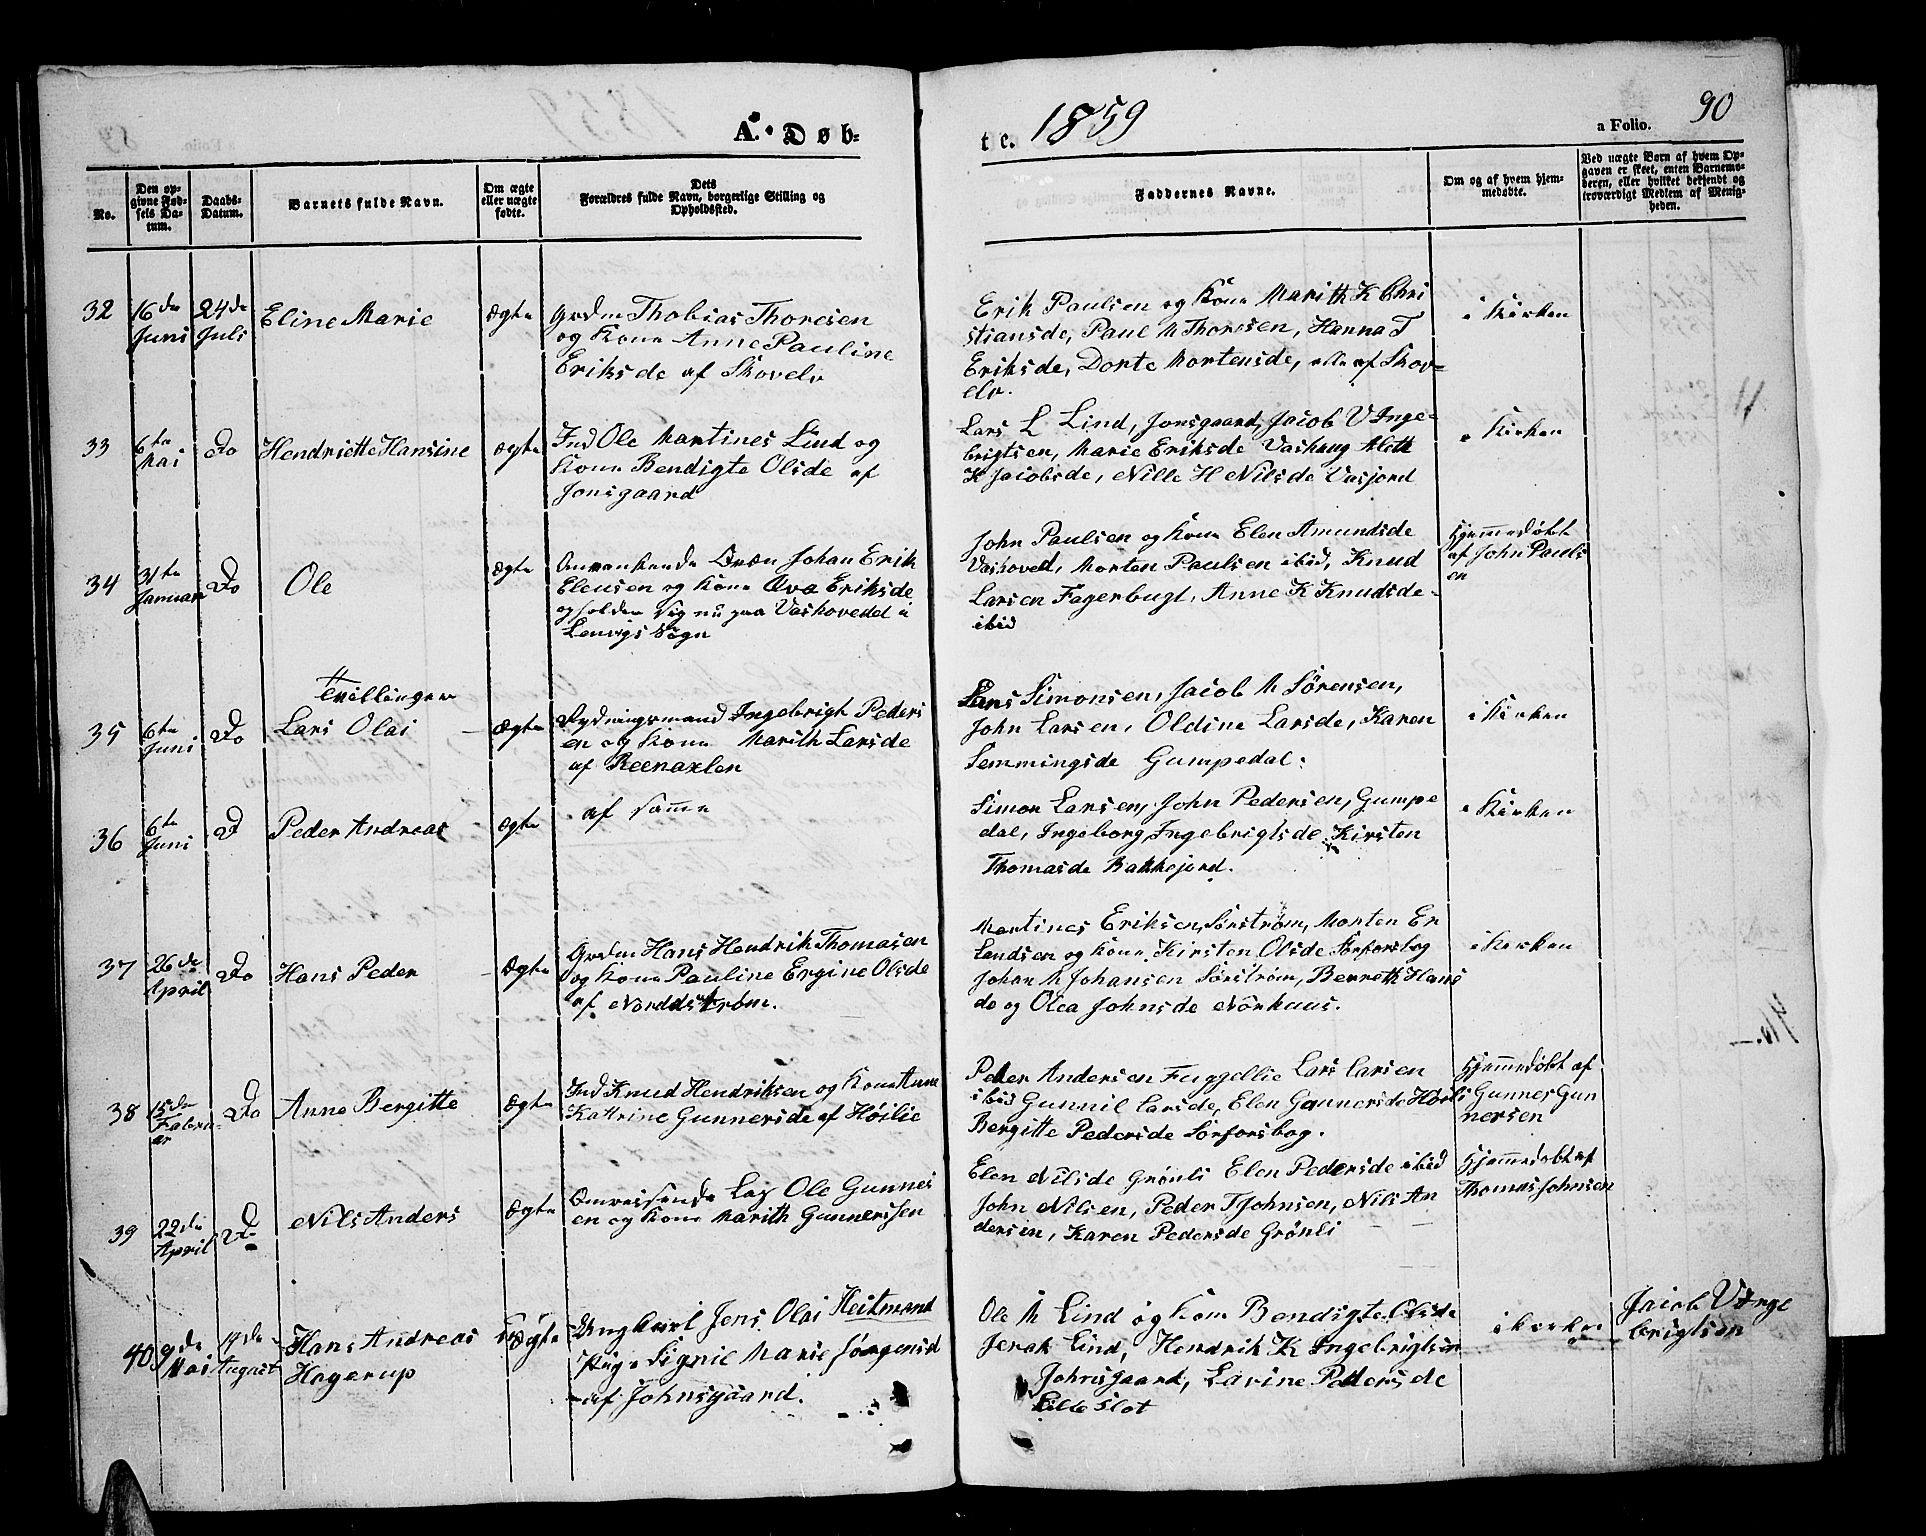 A. Døb-
te. 1859
a Folio. 90
No.
Den opgivne Fødsels Datum.
Daabs-Datum.
Barnets fulde Navn.
Om ægte eller uægte fødte.
Dets Forældres fulde Navn, borgerlige Stilling og Opholdssted.
Faddernes Navne.
Om og af hvem hjemmedøbte.
Ved uægte Børn af hvem Opgaven er skeet, enten Barnemoderen, eller hvilket bekjendt og troværdigt Medlem af Menigheden.
32
16de Juni
24de Juli
Eline Marie
ægte
Grdm Thobias Thoresen
og Kone Anne Pauline
Eriksde af Skovelv
Erik Paulsen og Kone Marith K Chri
stiansde, Paul M Thoresen, Hanna T
Eriksde, Dorte Mortensde, alle af Skov=
elv.
i Kirken
33
6te Mai
Do
Hendriette Hansine
ægte
Ind Ole Martines Lind og
Kone Bendigte Olsde af
Jonsgaard
Lars L Lind, Jonsgaard, Jacob V Inge-
brigtsen, Marie Eriksde Vashaug Aleth
K Jacobsde, Nille H Nilsde Vasjord
i Kirken
34
31te Januar
Do
Ole
ægte
Johan Erik
Elensen og Kone Eva Eriksde
opholder sig nu paa Vashovedet i
Lenvigs Sogn
John Paulsen og Kone Elen Amundsde
Vashoved, Morten Paulsen ibid, Knud
Larsen Fagerbugt, Anne K Knudsde
ibid
Hjemmedøbt
af John Pauls
en
Tvillinger
35
6te Juni
Do
Lars Olai
ægte
Rydningsmand Ingebrigt Peders
en og Kone Marith Larsde
af Reenaxlen
Lars Simonsen, Jacob M Sørensen,
John Larsen, Oldine Larsde, Karen
Semmingsde Gumpedal.
i Kirken
36
6te Juni
Do
Peder Andreas
ægte
af samme
Simon Larsen, John Pedersen, Gumpe
dal, Ingeborg Ingebrigtsde, Kirsten
Thomasde Bakkejord.
i Kirken
37
26de April
Do
Hans Peder
ægte
Grdm Hans Hendrik Thomasen
og Kone Pauline Ergine Olsde
af Norddstrøm.
Martines Eriksen, Sørstrøm, Morten Er
landsen og Kone Kirsten Olsde Sørforsbog
Johan M Johansen Sørstrøm, Berreth Hans
de og Olea Johnsde Nørhuus.
i Kirken
38
15de Februar
Do
Anne Bergitte
ægte
Ind Knud Hendriksen og Kone Anne
Kattrine Gunnersde af Høilie
Peder Andersen Fuggellie Lars Larsen
ibid Gunnil Larsde, Elen Gunnersde Høili
Bergitte Pedersde Sørforsbog.
Hjemmedøbt af
Gunnes Gun
nersen
39
22de April
Do
Nils Anders
ægte
Omreisende Lap Ole Gunnes
en og Kone Marith Gunnerssen
Elen Nilsde Grønli Elen Pedersde ibid
John Nilsen, Peder T Johnsen, Nils An
dersen, Karen Pedersde Grønli
Hjemmedøbt af
Thomas Johnsen
40
9de Mai
14de August
Hans Andreas
Hagerup
uægte
Ungkarl Jens Olai Heitmand
Pige Signie Marie Jørgensd
af Johnsgaard.
Ole M Lind og Kone Bendigte Olsde
Jerak Lind, Hendrik K Ingebrigtsen
Johnsgaard, Lavine Pedersde
Lille Slot
i Kirken
Jacob V Inge
brigtsen